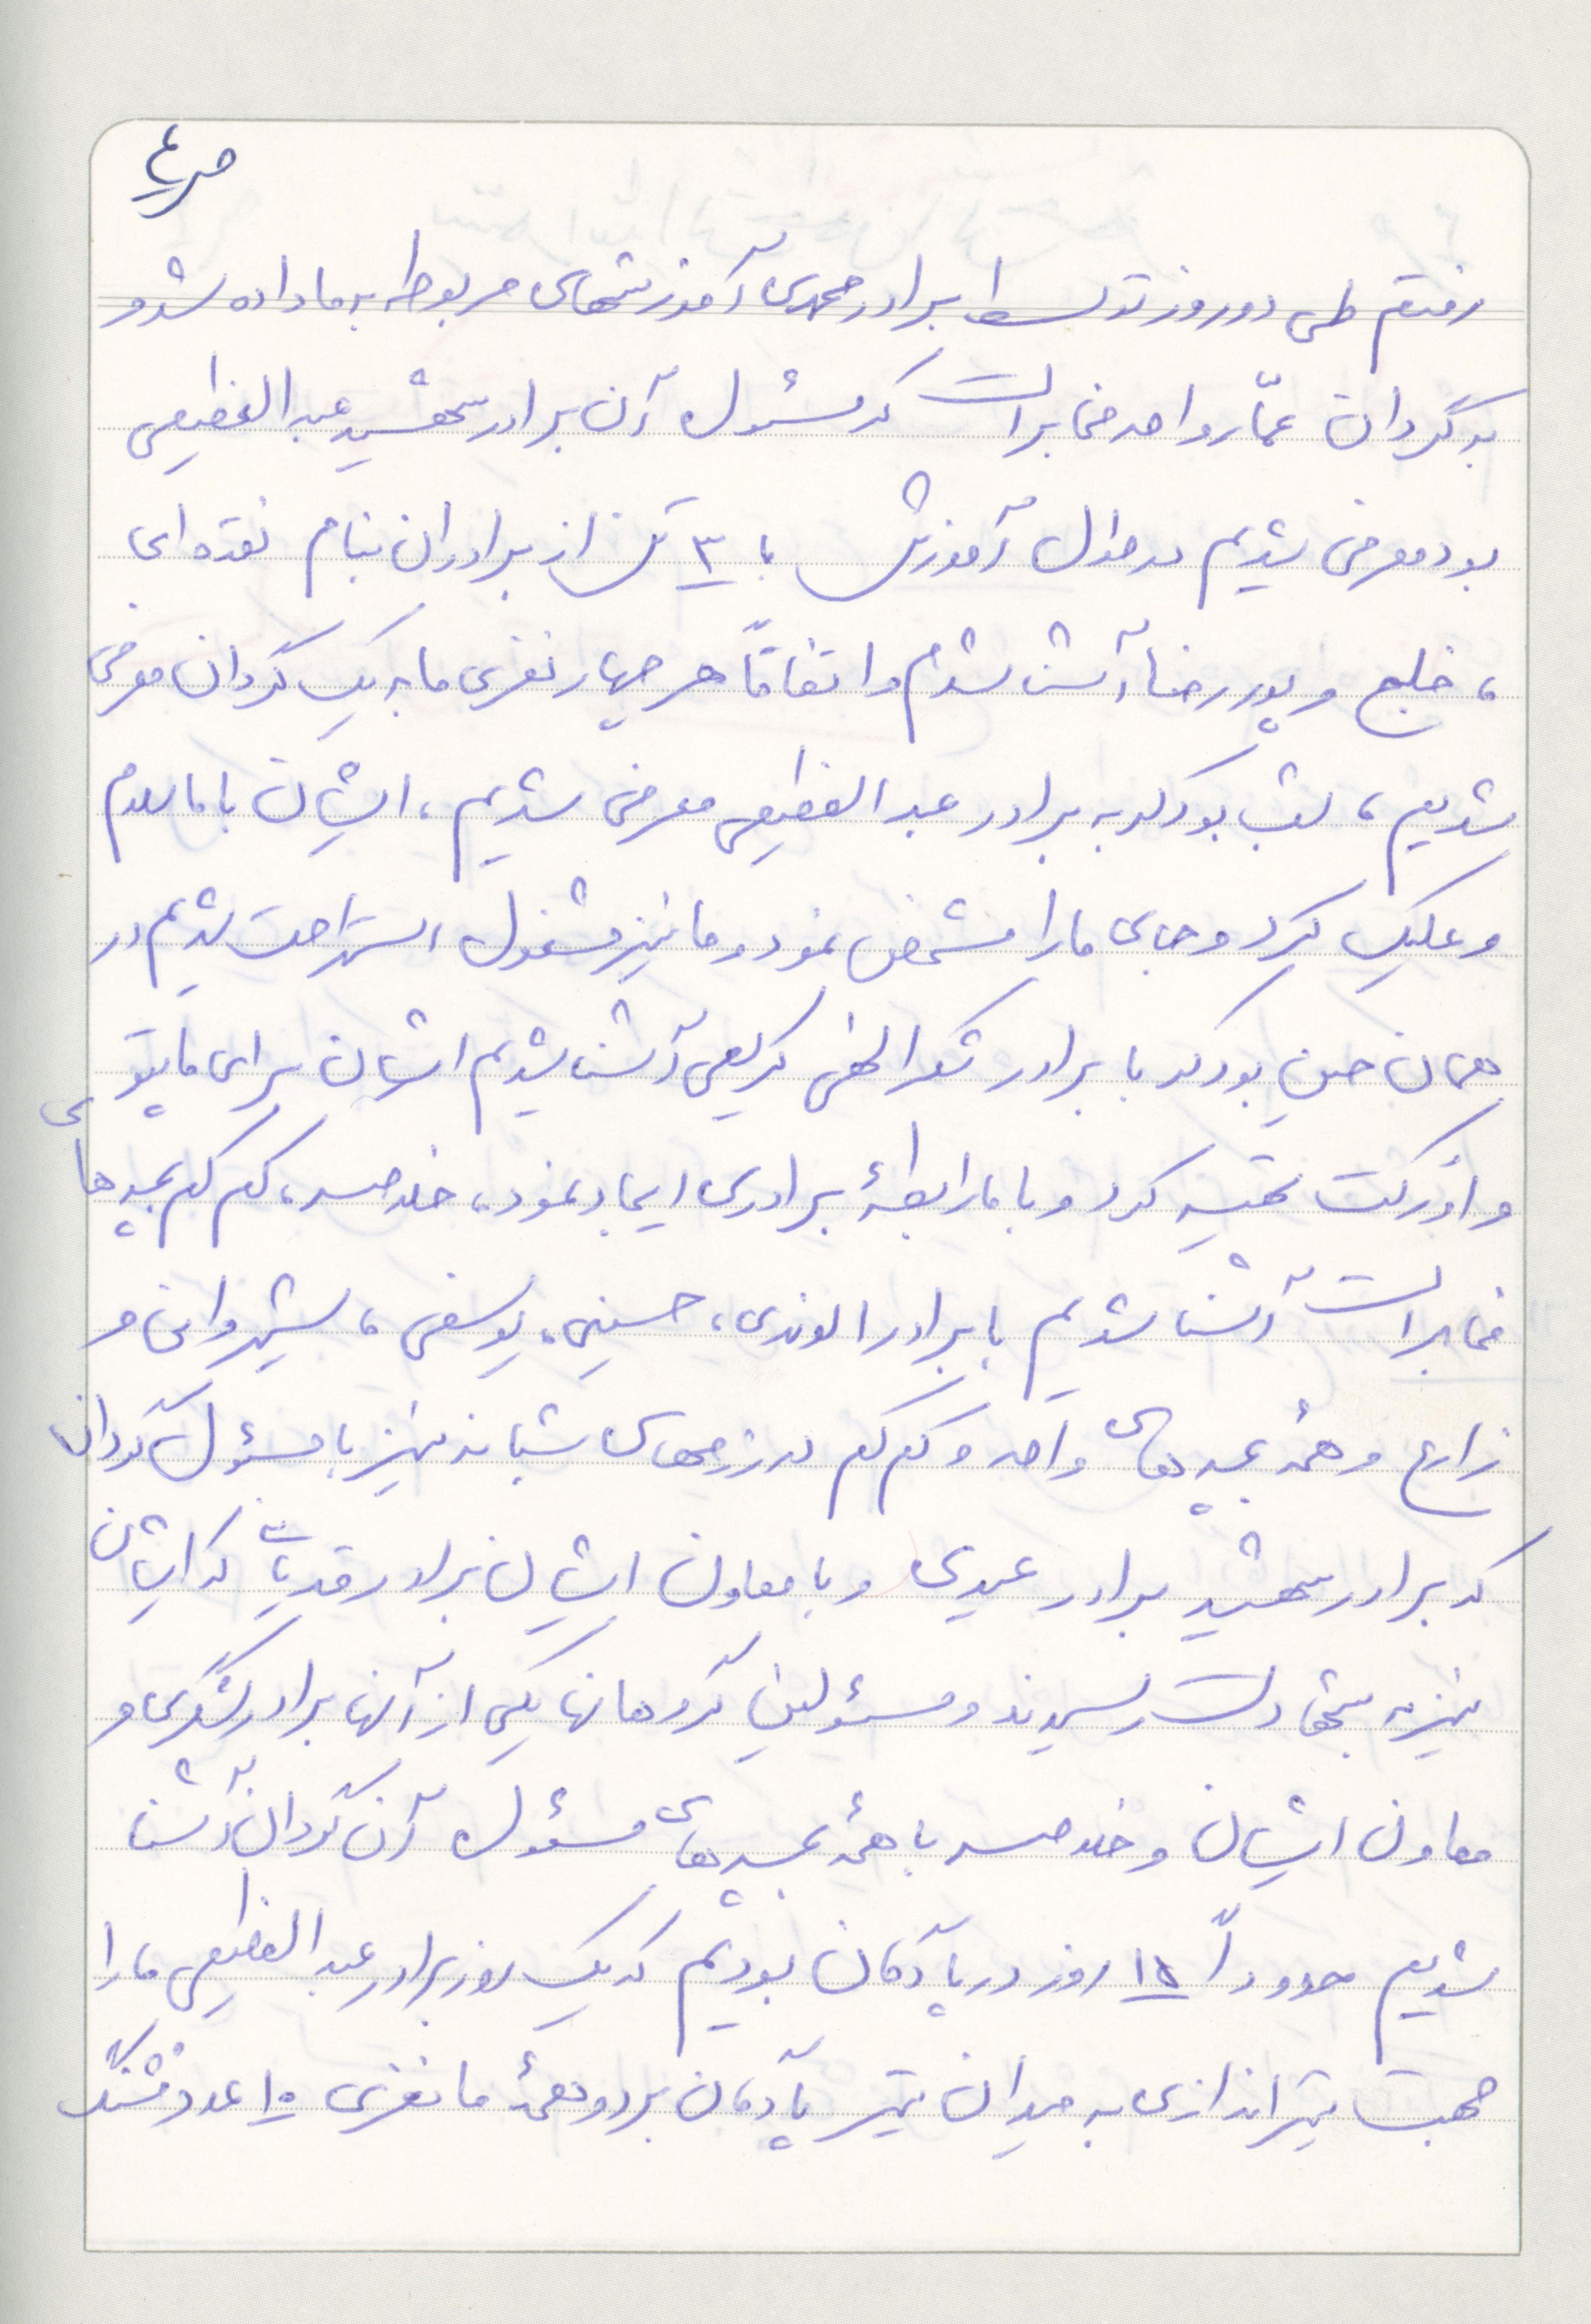 ص ٤
رفتم طی دو روز توسط برادر محمدی آموزشهای مربوطه به ما داده شد و
به گردان عمّار واحد مخابرات که مسئول آن برادر شهید عبدالعظیمی
بود معرفی شدیم در طول آموزش با ۳ تن از برادران بنام نقده ای
، خلج و پوررضا آشنا شدم و اتفاقاً هر چهار نفری ما به یک گردان معرفی
شدیم ، شب بود که به برادر عبدالعظیمی معرفی شدیم ، ایشان با ما سلام
و علیک کرد و جای ما را مشخص نمود و ما نیز مشغول استراحت شدیم در
همان حین بود که با برادر شکرالهی کریمی آشنا شدیم ایشان برای ما پتو
و اورکت تهیه کرد و با ما رابطهٔ برادری ایجاد نمود ، خلاصه ، کم کم بچه های
مخابرات آشنا شدیم با برادر الوندی ، حسینی ، یوسفی ، شیروانی و
زارع و همهٔ بچه های واحد و کم کم در رزمهای شبانه نیز با مسئول گردان
که برادر شهید برادر عیدی و با معاون ایشان برادر قدیانی که ایشان
نیز به شهادت رسیدند و مسئولین گروهانها یکی از آنها برادر لشگری و
معاون ایشان و خلاصه با همهٔ بچه های مسئول آن گردان آشنا
شدیم حدوداً ۱۵ روز در پادگان بودیم که یک روز برادر عبدالعظیمی ما را
جهت تیراندازی به میدان تیر پادگان برد و همهٔ ما نفری ۱۰ عدد فشنگ